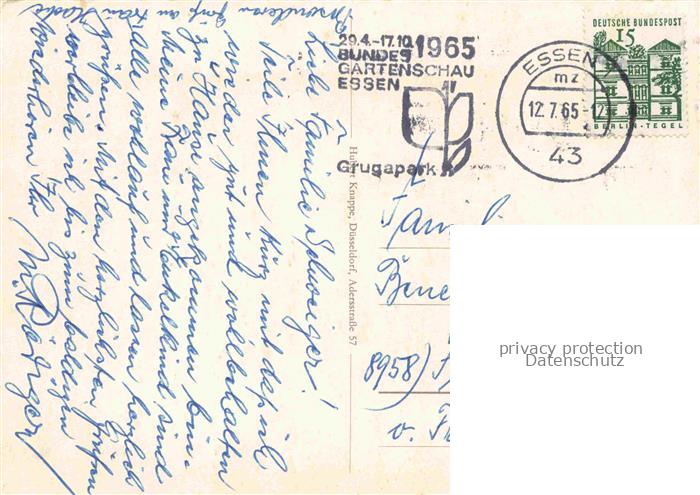 Besonderen Gruß an Frau
Liebe Familie Schweiger!
Teile Ihnen kurz mit daß ich
wieder gut und wohlbehalten
zu Hause angekommen bin.
Meine Frau und Enkelkind sind
alle wohlauf und lassen herzlich
grüßen. Mit den herzlichsten Grüßen
verbleibe ich bis zum baldigen
Wiedersehen Ihr
29.4.-17.10.1965
BUNDES
GARTENSCHAU
ESSEN
Grugapark
ESSEN
mz
12.7.65-12
43
DEUTSCHE BUNDESPOST
15
BERLIN-TEGEL
Hubert Knappe, Düsseldorf, Adersstraße 57
Familie
8958)
privacy protection
Datenschutz